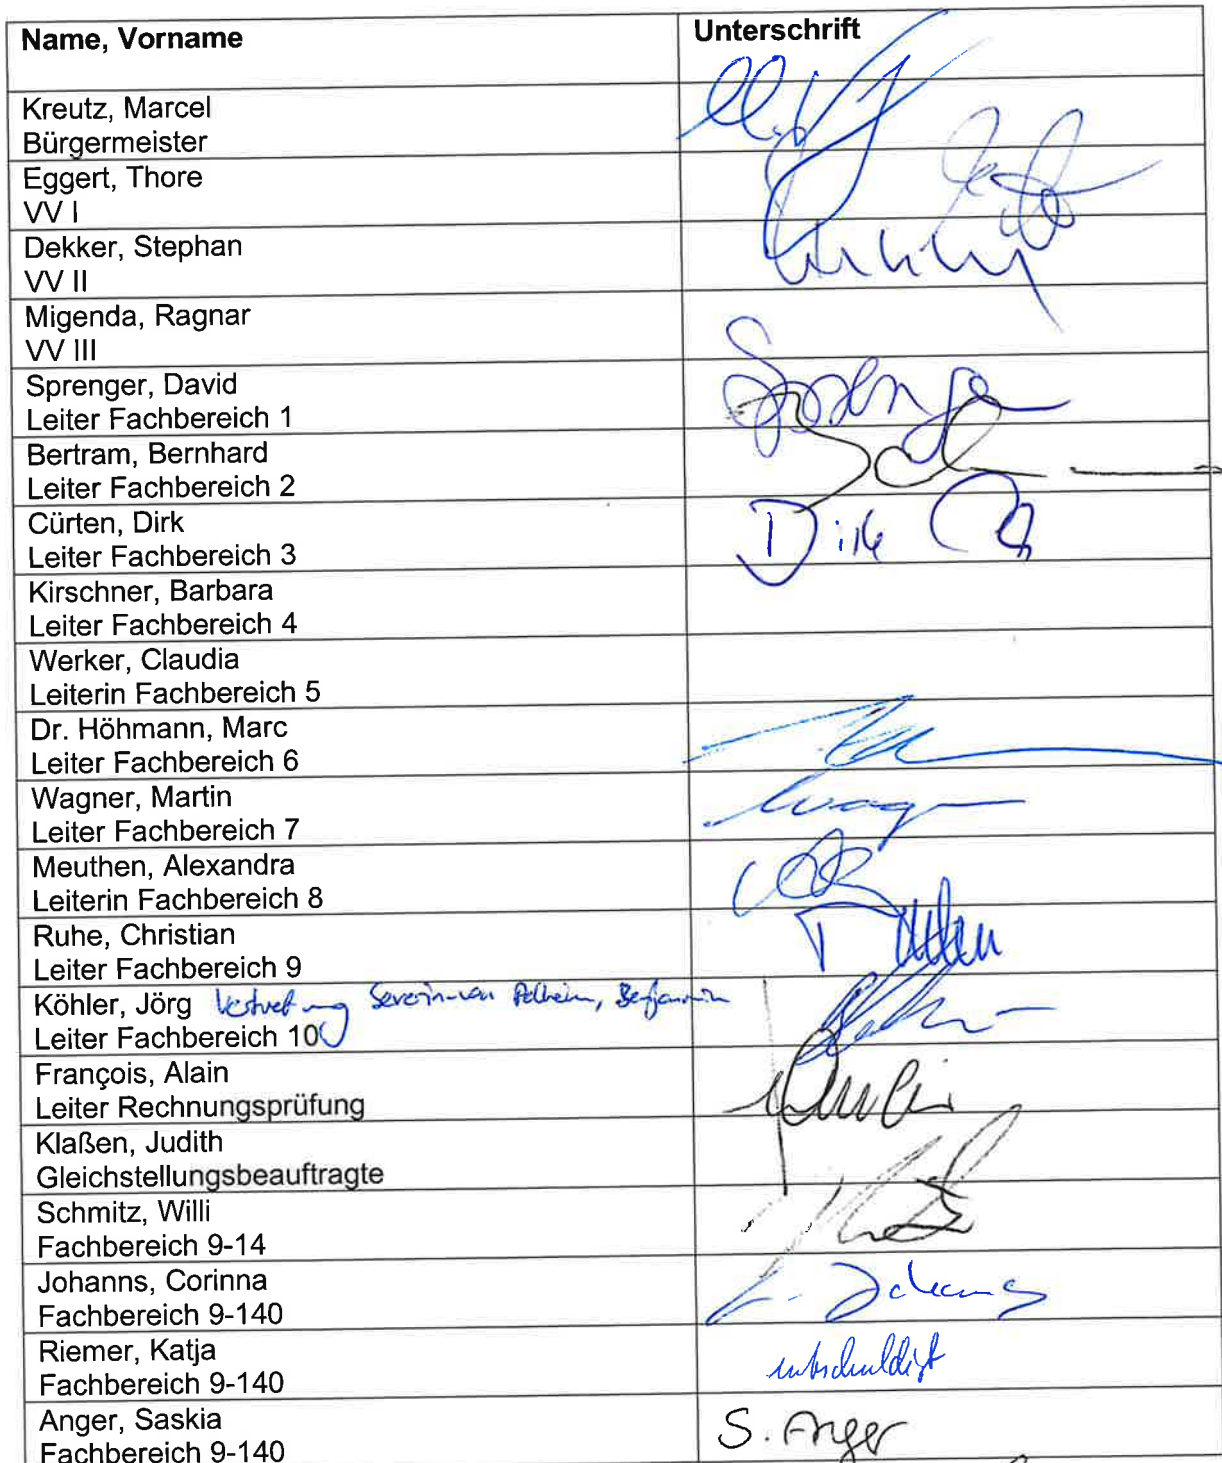 Name, Vorname Unterschrift
Kreutz, Marcel
Bürgermeister
Eggert, Thore
VV I
Dekker, Stephan
VV II
Migenda, Ragnar
VV III
Sprenger, David
Leiter Fachbereich 1
Bertram, Bernhard
Leiter Fachbereich 2
Cürten, Dirk
Leiter Fachbereich 3
Dirk
Kirschner, Barbara
Leiter Fachbereich 4
Werker, Claudia
Leiterin Fachbereich 5
Dr. Höhmann, Marc
Leiter Fachbereich 6
Wagner, Martin
Leiter Fachbereich 7
Meuthen, Alexandra
Leiterin Fachbereich 8
Ruhe, Christian
Leiter Fachbereich 9
Köhler, Jörg Vertretung Severin-von Benjamin
Leiter Fachbereich 10
François, Alain
Leiter Rechnungsprüfung
Klaßen, Judith
Gleichstellungsbeauftragte
Schmitz, Willi
Fachbereich 9-14
Johanns, Corinna
Fachbereich 9-140
Riemer, Katja
Fachbereich 9-140
entschuldigt
Anger, Saskia
Fachbereich 9-140
S. Anger